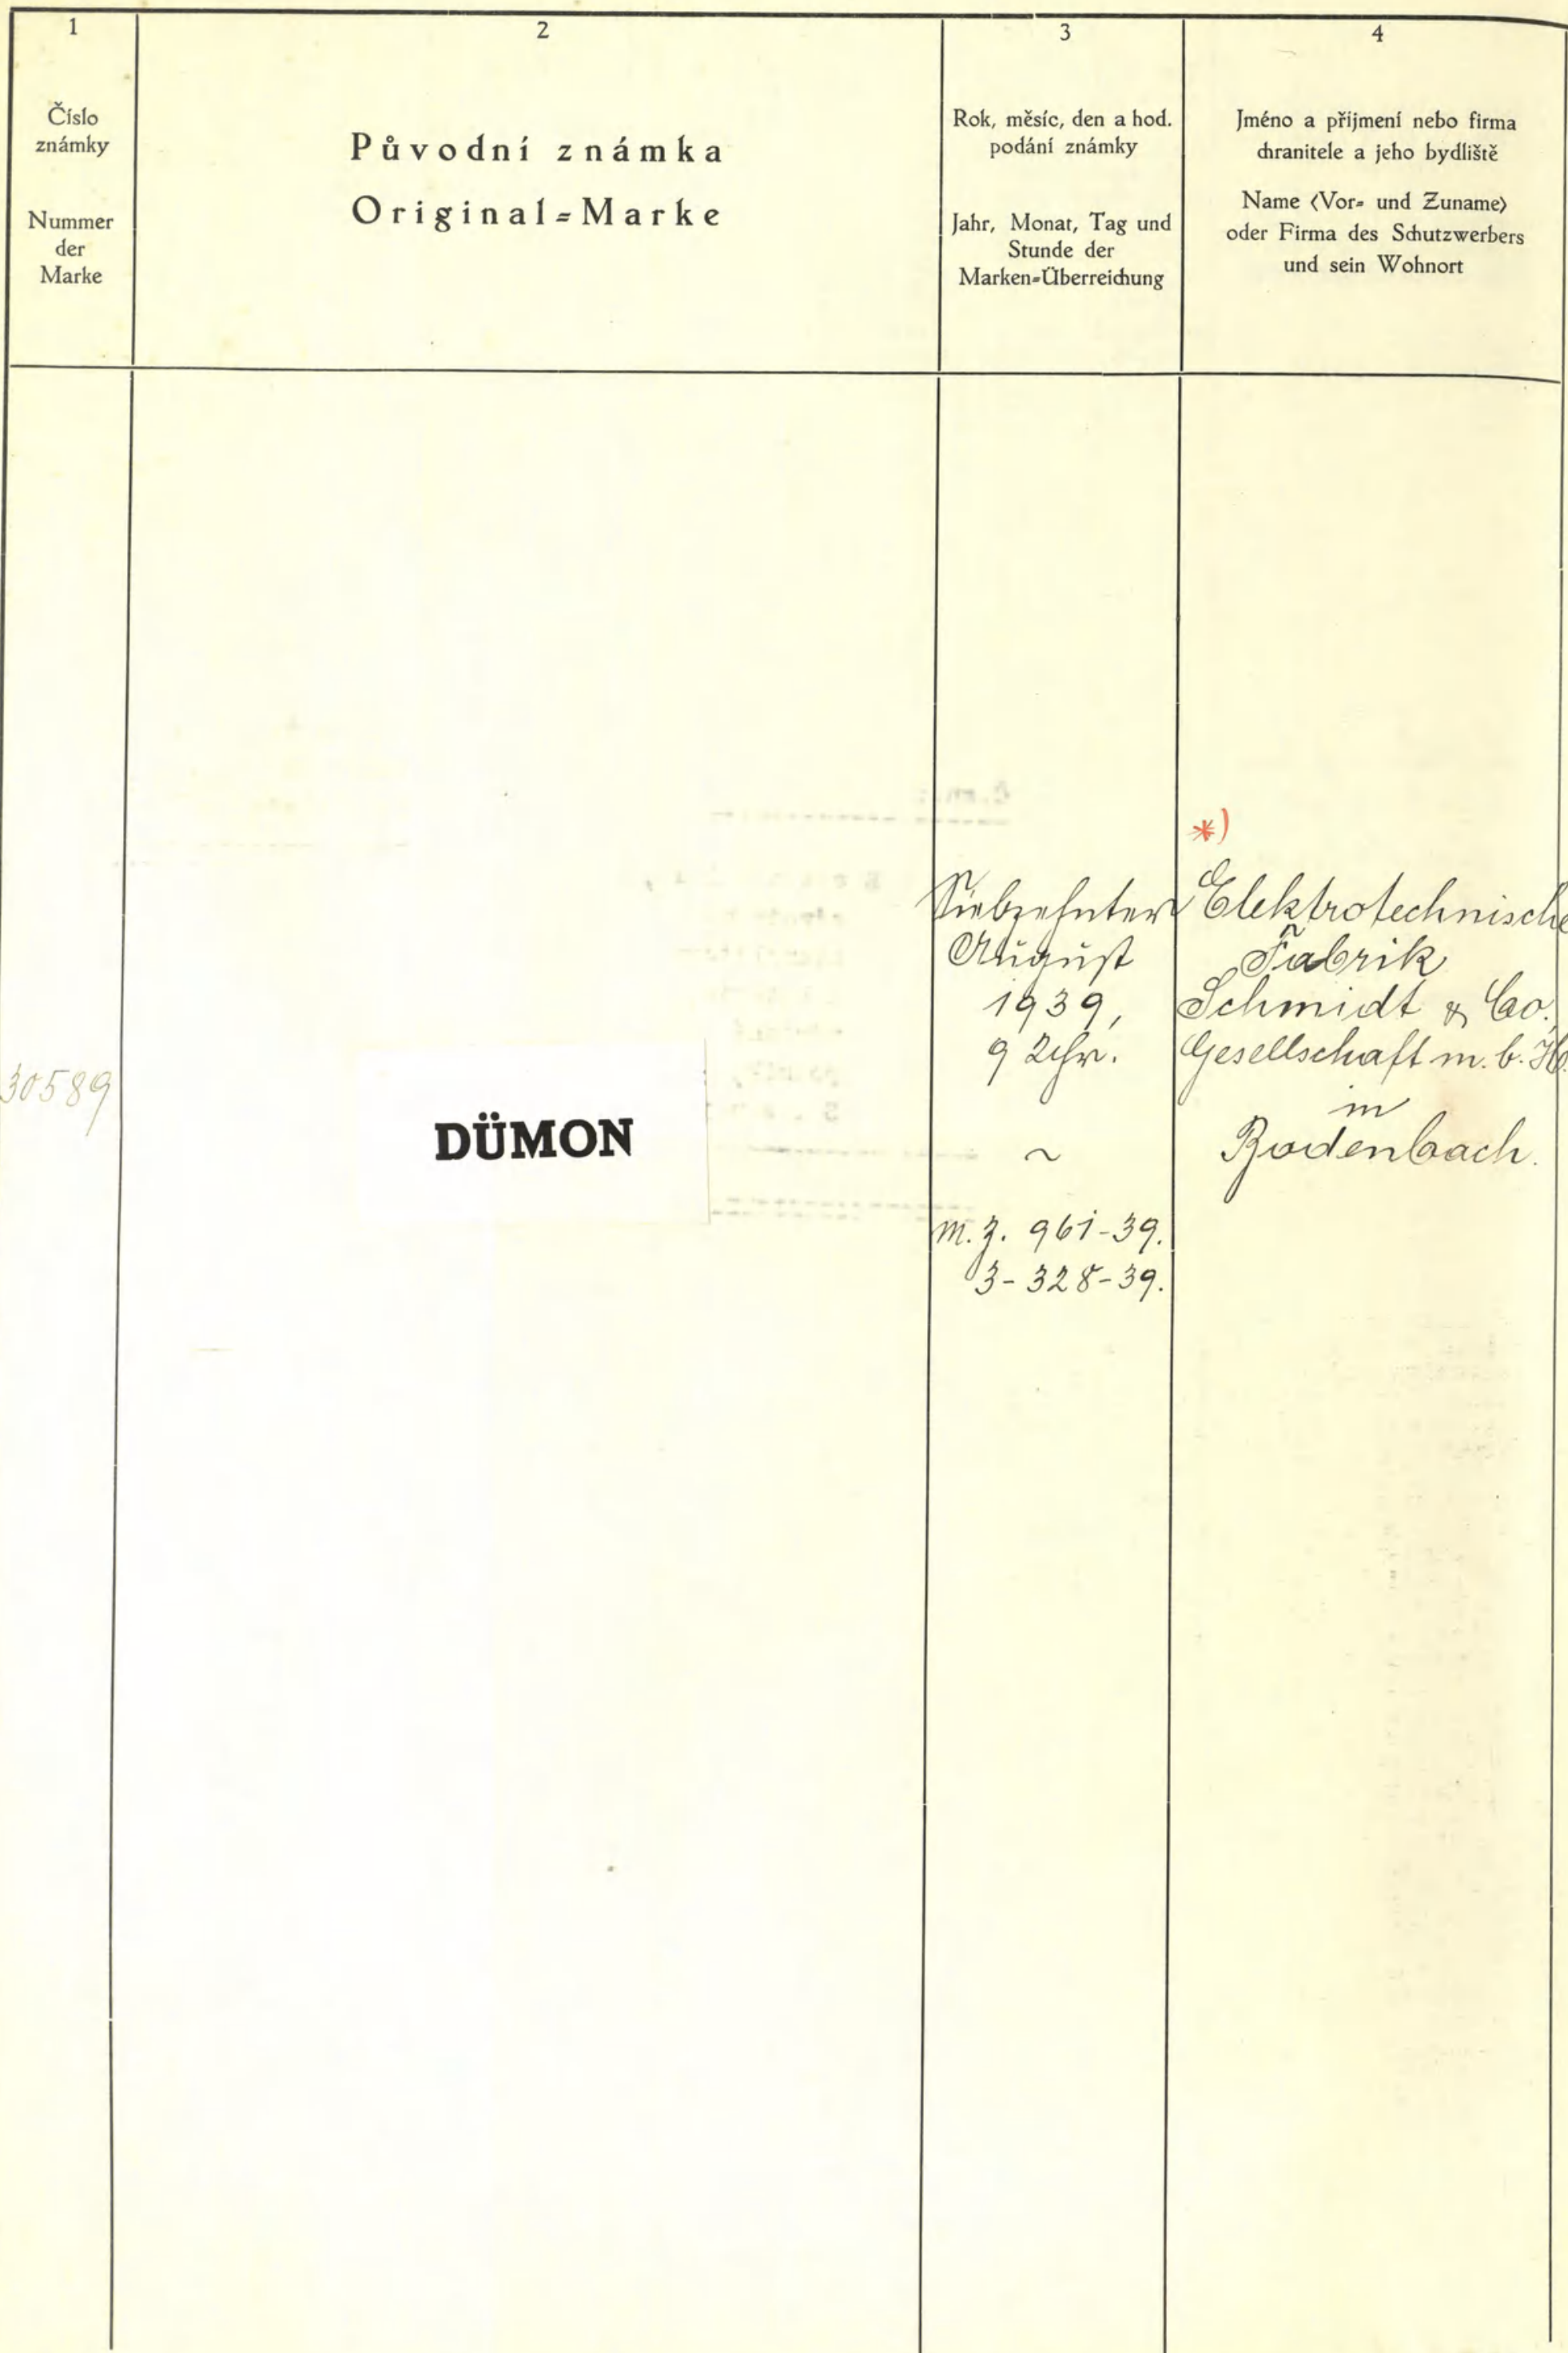 1
Číslo
známky
Nummer
der
Marke
2
Původní známka
Original=Marke
3
Rok, měsíc, den a hod.
podání známky
Jahr, Monat, Tag und
Stunde der
Marken=Überreichung
4
Jméno a přijmení nebo firma
chranitele a jeho bydliště
Name (Vor= und Zuname)
oder Firma des Schutzwerbers
und sein Wohnort
30589
DÜMON
Siebzehnter
August
1939,
9 Uhr.
~
M. Z. 961-39.
3-328-39.
*)
Elektrotechnische
Fabrik
Schmidt & Co.
Gesellschaft m. b. H.
in
Bodenbach.